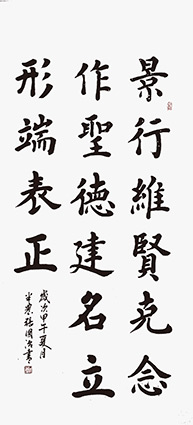 景行維賢克念
作聖德建名立
形端表正
歲次甲午夏月
張國書